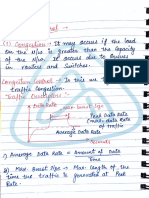 (1) Congestion → It may occur if the load
on the N/w is greater than the capacity
of the N/w. It occurs due to Queues
in routers and Switches.
Congestion Control → In this we
traffic Congestion.
Data Rate
Max. Burst Size
Peak Data Rate
(max. data Rate
of traffic)
Average Data Rate
1) Average Data Rate = Amount of Data
Time
2) Max. Burst Size → Max. length of the
time the traffic is generated at Peak
Rate.